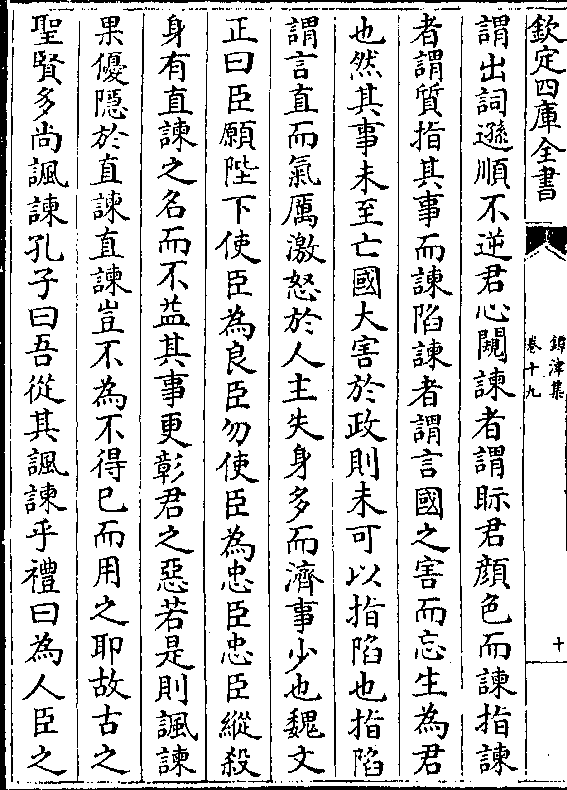 欽定四庫全書
鐔津集
卷十九
十
謂出詞遜順不逆君心闚諫者謂眎君顔色而諫指諫
者謂質指其事而諫陷諫者謂言國之害而忘生為君
也然其事未至亡國大害於政則未可以指陷也指陷
謂言直而氣厲激怒於人主失身多而濟事少也魏文
正曰臣願陛下使臣為良臣勿使臣為忠臣忠臣縱殺
身有直諫之名而不益其事更彰君之惡若是則諷諫
果優隱於直諫直諫豈不為不得已而用之耶故古之
聖賢多尚諷諫孔子曰吾從其諷諫乎禮曰為人臣之